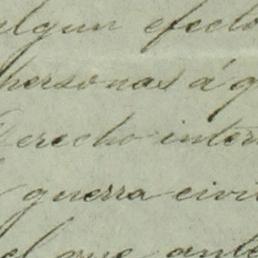 algun efecto
personas á q
derecho inter
guerra civil
el que ante